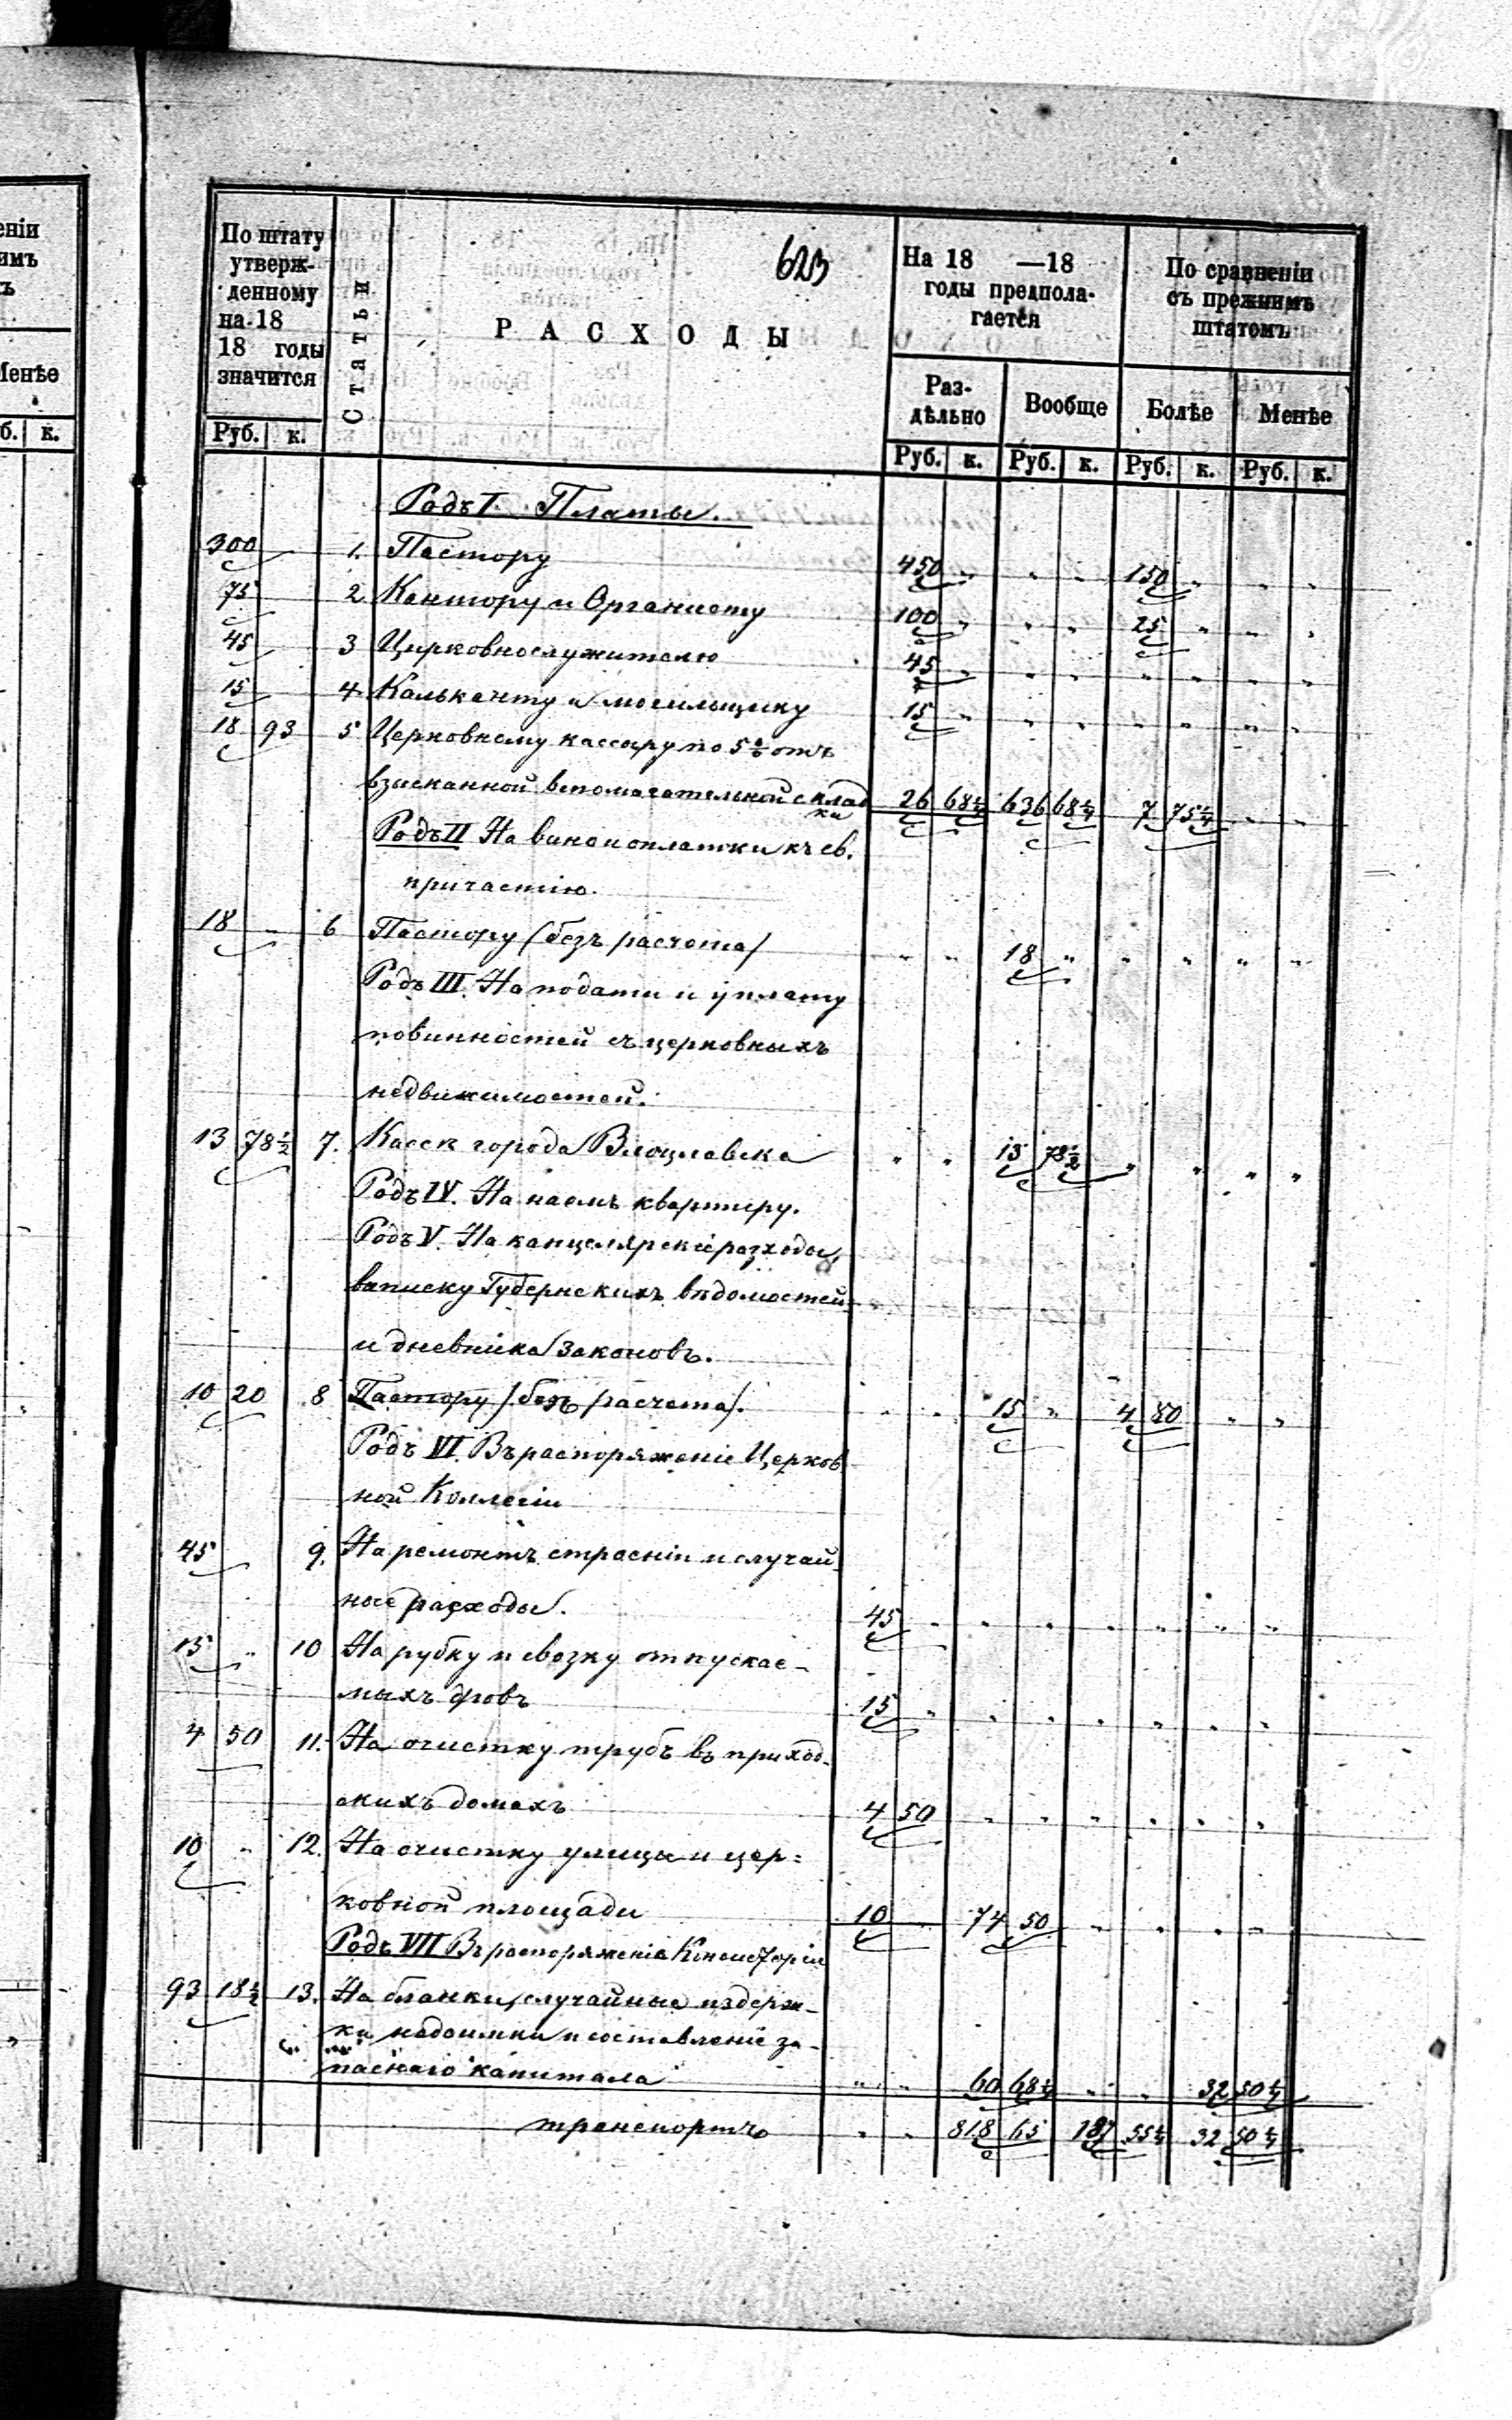 ніи
имъ
ъ
Менѣе
б. к.
623
По штату утверж- денному на 18 18 годы значится
Статьи
РАСХОДЫ
На 18 —18 годы предпола- гается
По сравненіи съ прежнимъ штатомъ
Раз- дѣльно
Вообще
Болѣе
Менѣе
Руб. к. Руб. к. Руб. к. Руб. к. Руб. к.
Родъ I. Платы.
300 1. Пастору 450 " " " 150 " " "
75 2 Кантору и Органисту 100 " " " 25 " " "
45 3 Церковнослужителю 45 " " " " " " "
15 4 Кальканту и могильщику 15 " " " " " " "
18 93 5 Церковному кассиру по 5% отъ
взысканной вспомагательной склад
ки 26 68¼ 636 68¼ 7 75¼ " "
Родъ II На вино и оплатки къ св.
причастію.
18 " 6 Пастору /безъ расчета/ " " 18 " " " " "
Родъ III. На подати и уплату
повинностей съ церковныхъ
недвижимостей.
13 78½ 7. Кассѣ города Влоцлавска " " 13 78½ " " " "
Родъ IV. На наемъ квартиру.
Родъ V. На канцелярскіе расходы,
выписку Губернскихъ вѣдомостей
и дневника законовъ.
10 20 8 Пастору /безъ расчета/. " " 15 " 4 80 " "
Родъ VI. Въ распоряженіе Церков
ной Коллегіи
45 9. На ремонтъ строеніи и случай
ные расходы. 45 " " " " " " "
15 " 10 На рубку и свозку отпускае-
мыхъ дровъ 15 " " " " " " "
4 50 11. На очистку трубъ въ приход-
скихъ домахъ 4 50 " " " " " "
10 " 12. На очистку улицы и цер=
ковной площади 10 74 50 " " " "
Родъ VII Въ распоряженіе Консисторіи
93 18½ 13. На бланки, случайные издерж-
ки недоимки и составленіе за-
паснаго капитала " " 60 68¼ " " 32 50¼
транспортъ " " 818 65 187 55¼ 32 50¼